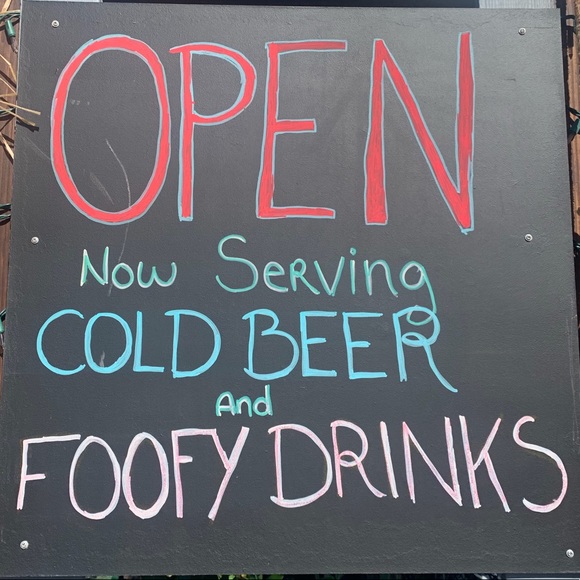 OPEN
Now Serving
COLD BEER
And
FOOFY DRINKS